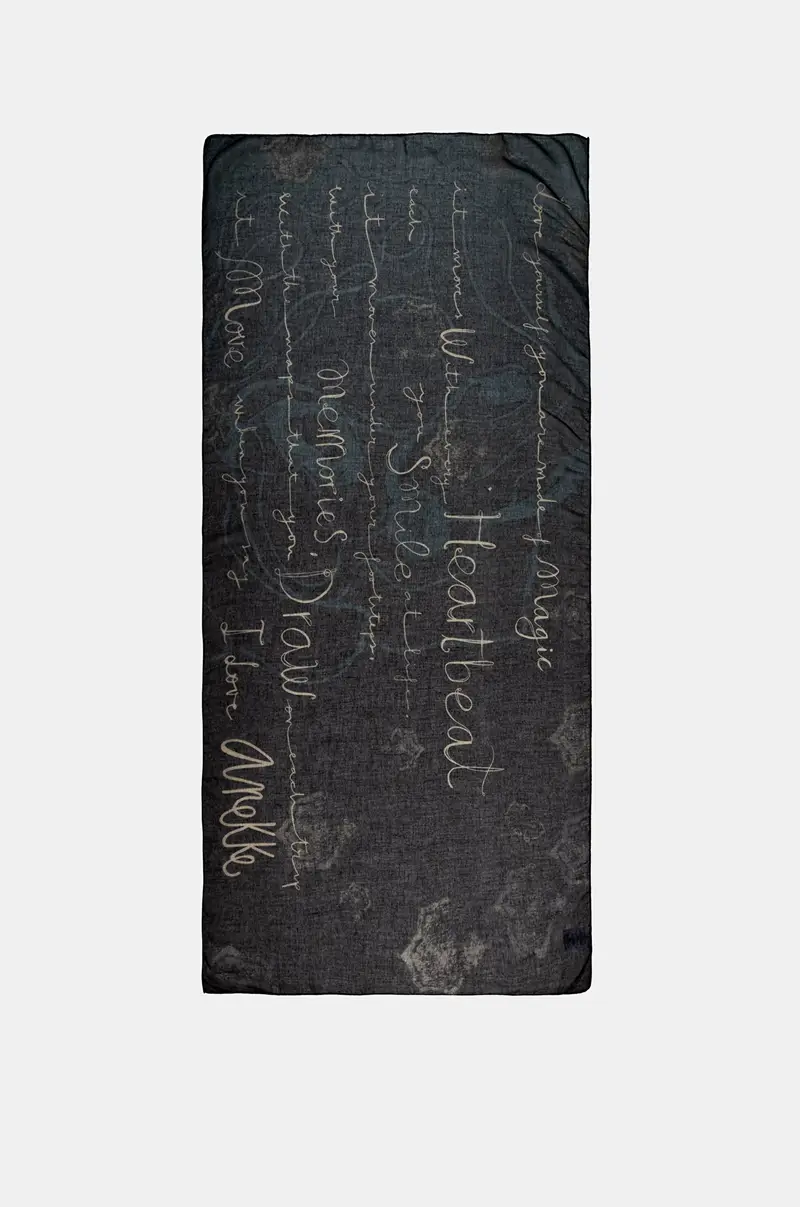 Love yourself you are made of Magic
it moves With every Heartbeat
each you Smile at life.
it moves under your footsteps,
with your Memories,
with the maps that you Draw on each trip
it Move when you say I love
anekke